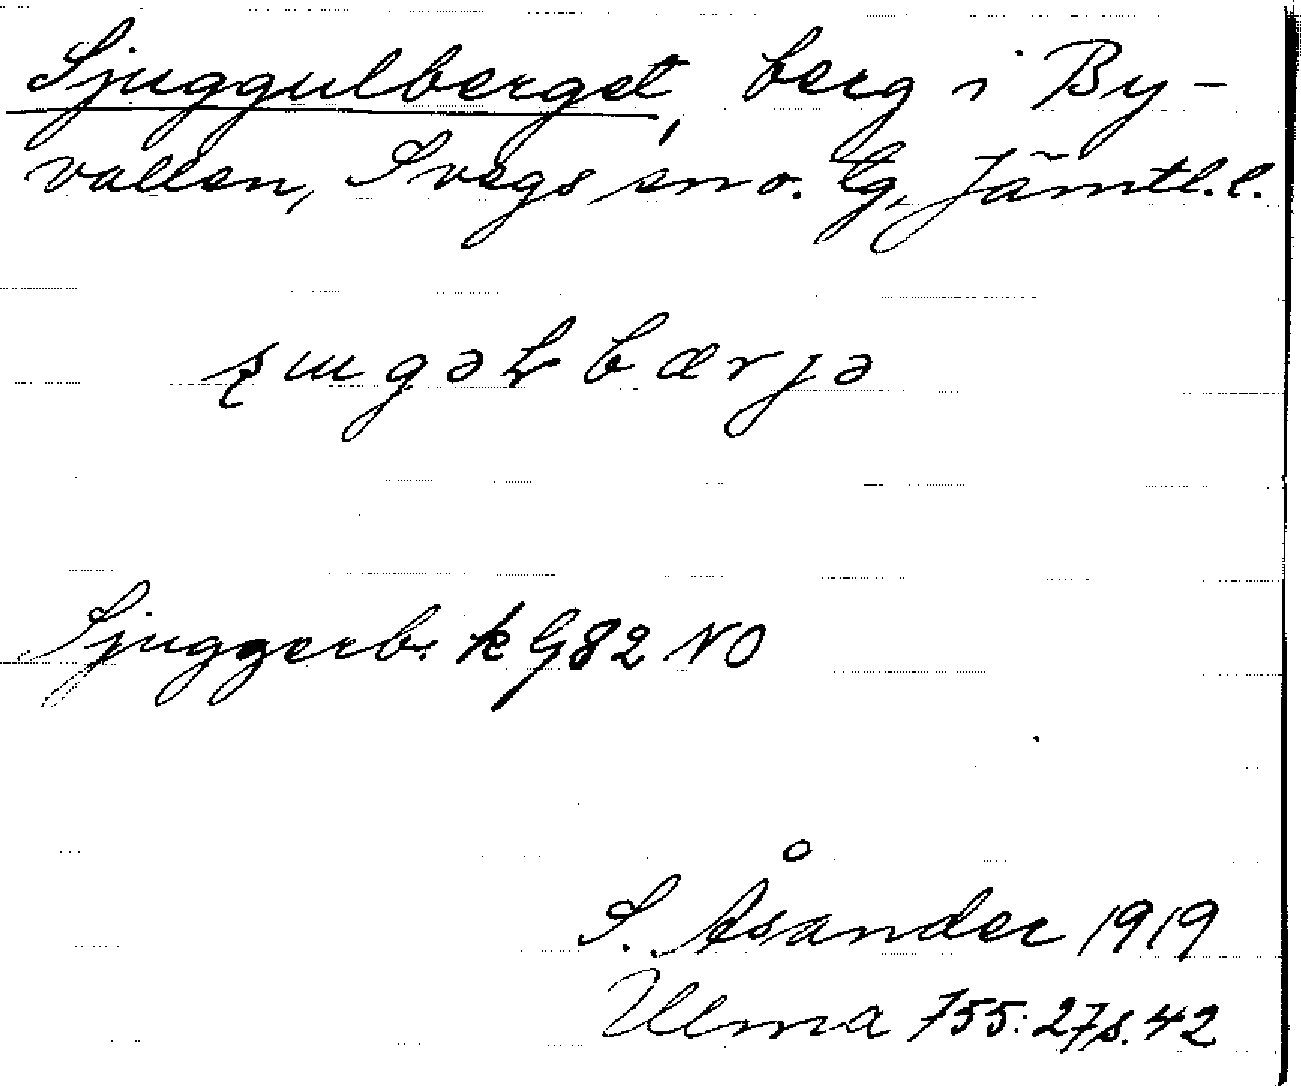 Sjuggulberget, berg i By-
vallen, Svegs sn o. tg, Jämtl. l.
Sjuggerb. k G82 NO
S. Åsander 1919
Ulma 755:27 s. 42